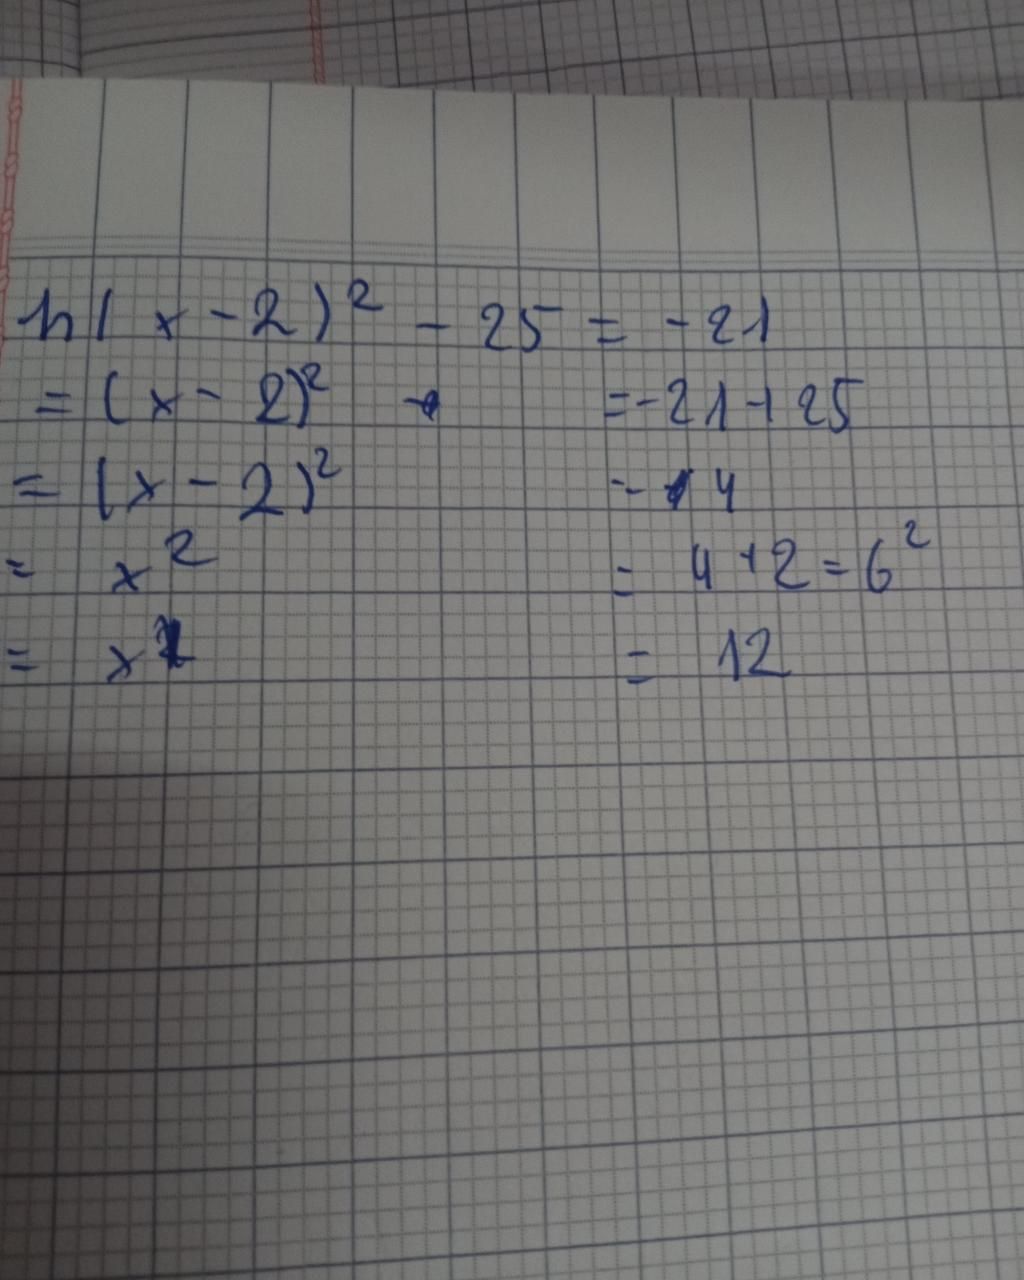 h(x-2)² - 25 = -21
= (x-2)² = -21+25
= (x-2)² = 4
= x² = 4+2=6²
= x = 12